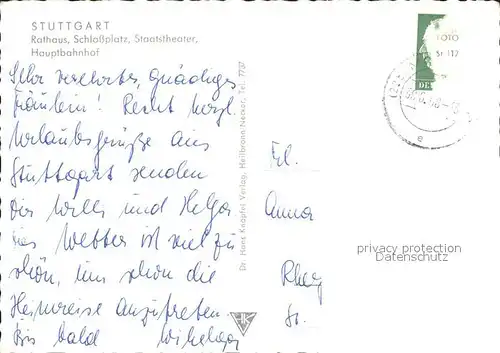 STUTTGART
Rathaus, Schloßplatz, Staatstheater,
Hauptbahnhof
Sehr verehrtes, gnädiges
Fräulein! Recht herzl.
Urlaubsgrüße aus
Stuttgart senden
Willi und Helga
Wetter ist viel zu
schön, um schon die
Heimreise anzutreten.
Bis bald
Dr. Hans Knöpfel Verlag, Heilbronn/Neckar, Tel. 7737
Frl.
Anna
privacy protection
Datenschutz
HK